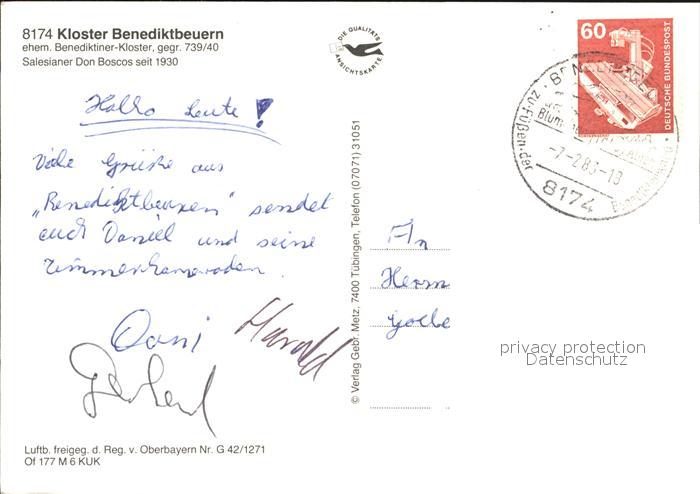 8174 Kloster Benediktbeuern
ehem. Benediktiner-Kloster, gegr. 739/40
Salesianer Don Boscos seit 1930
DIE QUALITÄTS
ANSICHTSKARTE
60
DEUTSCHE BUNDESPOST
zu Füßen der
-7-2.83-18
8174
Hallo Leute!
Viele Grüße aus
„Benediktbeuren" sendet
euch Daniel und seine
Zimmerkameraden.
Dani
Harald
Gerhard
© Verlag Gebr. Metz, 7400 Tübingen, Telefon (07071) 31051
An
Herrn
privacy protection
Datenschutz
Luftb. freigeg. d. Reg. v. Oberbayern Nr. G 42/1271
Of 177 M 6 KUK